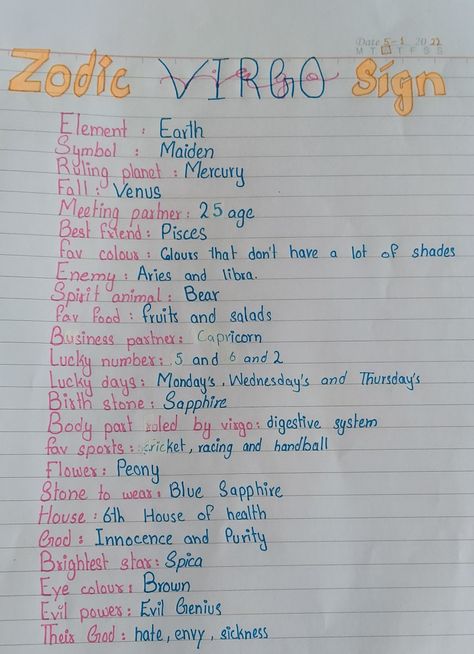 Date 5-1 2022
M T W T F S S
Zodic VIRGO Sign
Element : Earth
Symbol : Maiden
Ruling planet : Mercury
Fall : Venus
Meeting partner : 25 age
Best friend : Pisces
Fav colour : Colours that don't have a lot of shades
Enemy : Aries and libra.
Spirit animal : Bear
Fav food : fruits and salads
Business partner : Capricorn
Lucky number : 5 and 6 and 2
Lucky days : Monday's, Wednesday's and Thursday's
Birth stone : Sapphire
Body part ruled by virgo : digestive system
fav sports : cricket, racing and handball
Flower : Peony
Stone to wear : Blue Sapphire
House : 6th House of health
God : Innocence and Purity
Brightest star : Spica
Eye colour : Brown
Evil power : Evil Genius
Their God : hate, envy, sickness